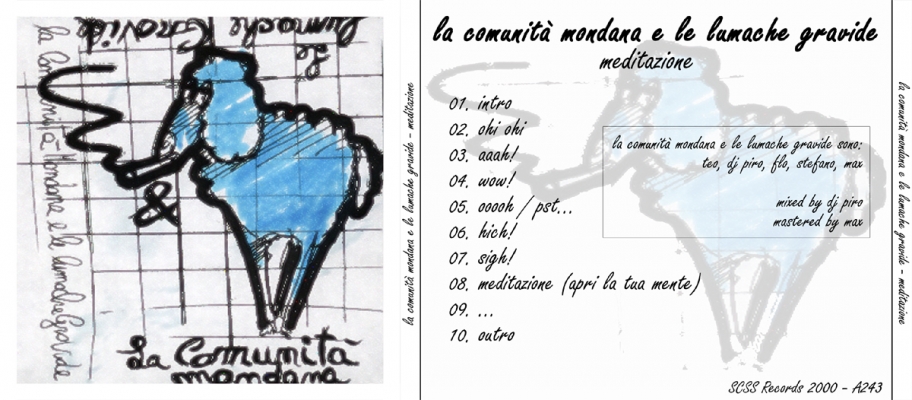 le lumache Gravide
La Comunità Mondana e le lumache Gravide
&
La Comunità
mondana
la comunità mondana e le lumache gravide - meditazione
la comunità mondana e le lumache gravide
meditazione
01. intro
02. ohi ohi
03. aaah!
04. wow!
05. ooooh / pst...
06. hich!
07. sigh!
08. meditazione (apri la tua mente)
09. ...
10. outro
la comunità mondana e le lumache gravide sono:
teo, dj piro, flo, stefano, max
mixed by dj piro
mastered by max
SCSS Records 2000 - A243
la comunità mondana e le lumache gravide - meditazione